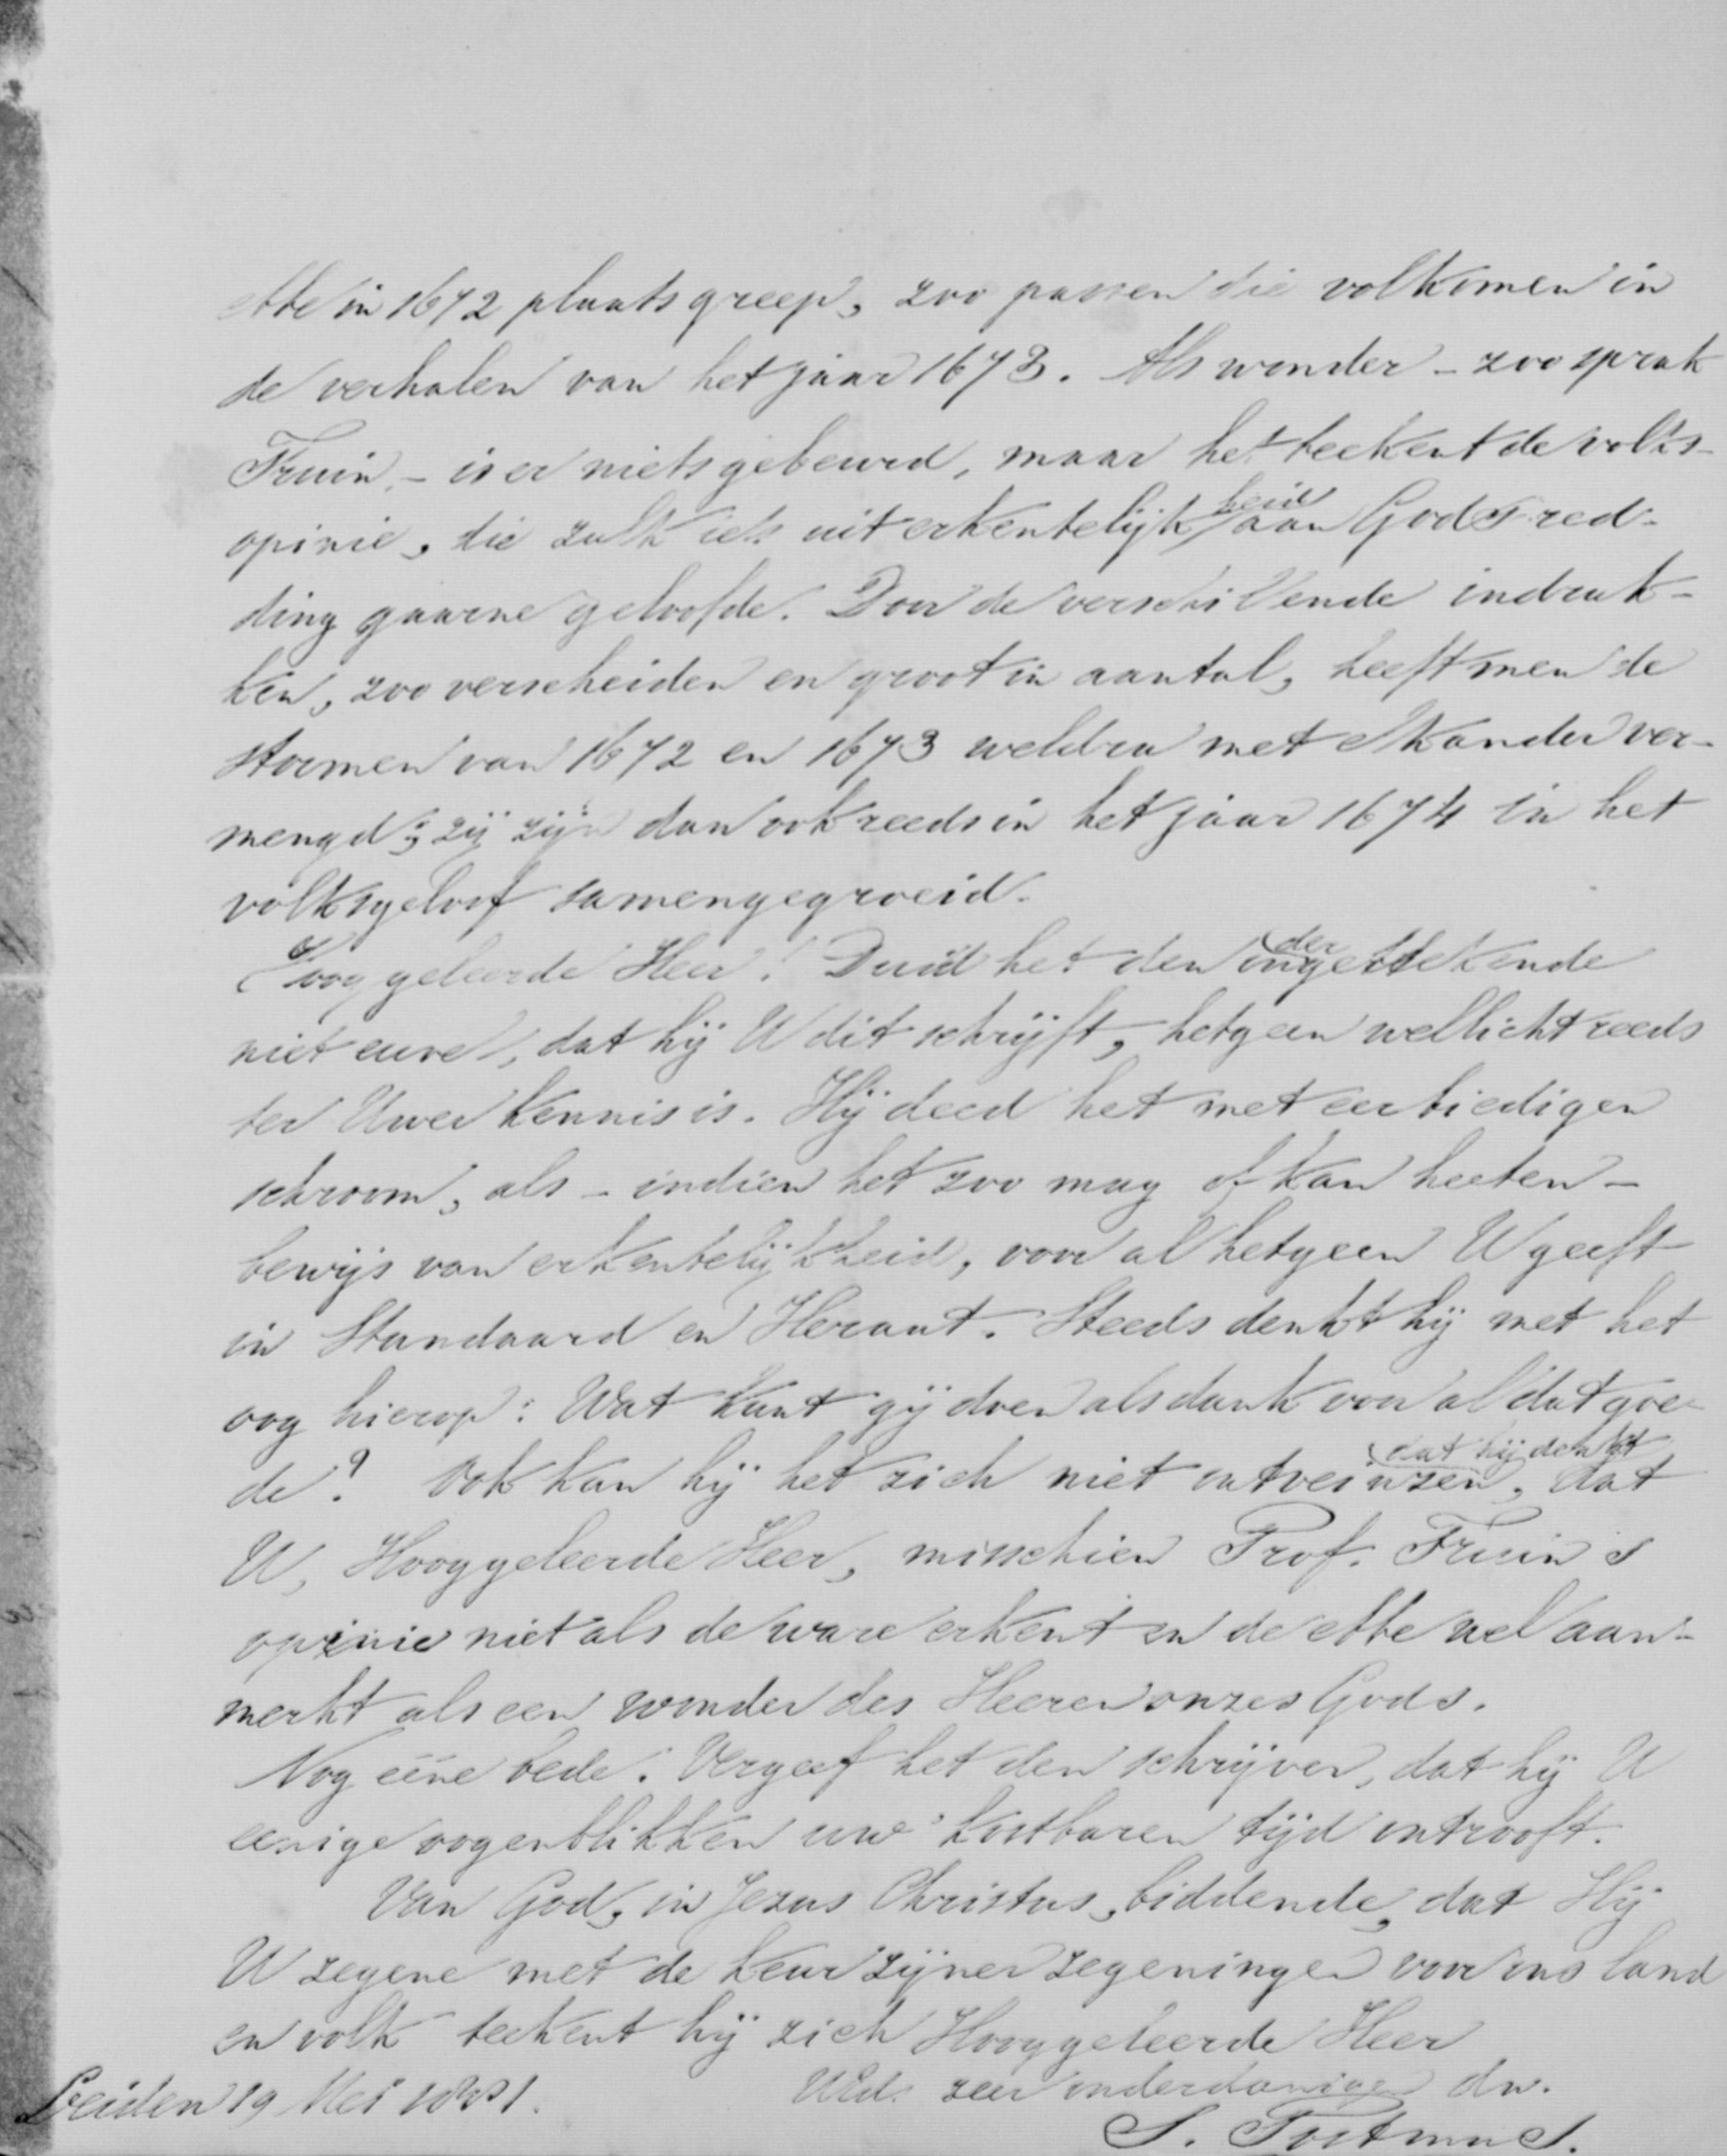 ebbe in 1672 plaats greep, zoo passen die volkomen in
de verhalen van het jaar 1673. Als wonder - zoo sprak
Fruin, - is er niets gebeurd, maar het teekent de volks-
opinie, die zulk iets uit erkentelijkheid aan Gods red-
ding gaarne geloofde. Door de verschillende indruk-
ken, zoo verscheiden en groot in aantal, heeft men de
stormen van 1672 en 1673 weldra met elkander ver-
mengd; zij zijn dan ook reeds in het jaar 1674 in het
volksgeloof samengegroeid.
Hooggeleerde Heer! Duid het den ondergeteekende
niet euvel, dat hij U dit schrijft, hetgeen wellicht reeds
ter Uwer kennis is. Hij deed het met eerbiedigen
schroom, als - indien het zoo mag of kan heeten -
bewijs van erkentelijkheid, voor al hetgeen U geeft
in Standaard en Heraut. Steeds denkt hij met het
oog hierop: Wat kunt gij doen als dank voor al dat goe-
de? Ook kan hij het zich niet ontveinzen, dat hij denkt dat
U, Hooggeleerde Heer, misschien Prof. Fruin's
opinie niet als de ware erkent en de ebbe wel aan-
merkt als een wonder des Heeren onzes Gods.
Nog ééne bede: Vergeef het den schrijver, dat hij U
eenige oogenblikken uw kostbaren tijd ontrooft.
Van God, in Jezus Christus, biddende, dat Hij
U zegene met de keur zijner zegeningen voor ons land
en volk teekent hij zich Hooggeleerde Heer
UEd. zeer onderdanige dw.
Leiden 19 Mei 1881.
S. Postmus.